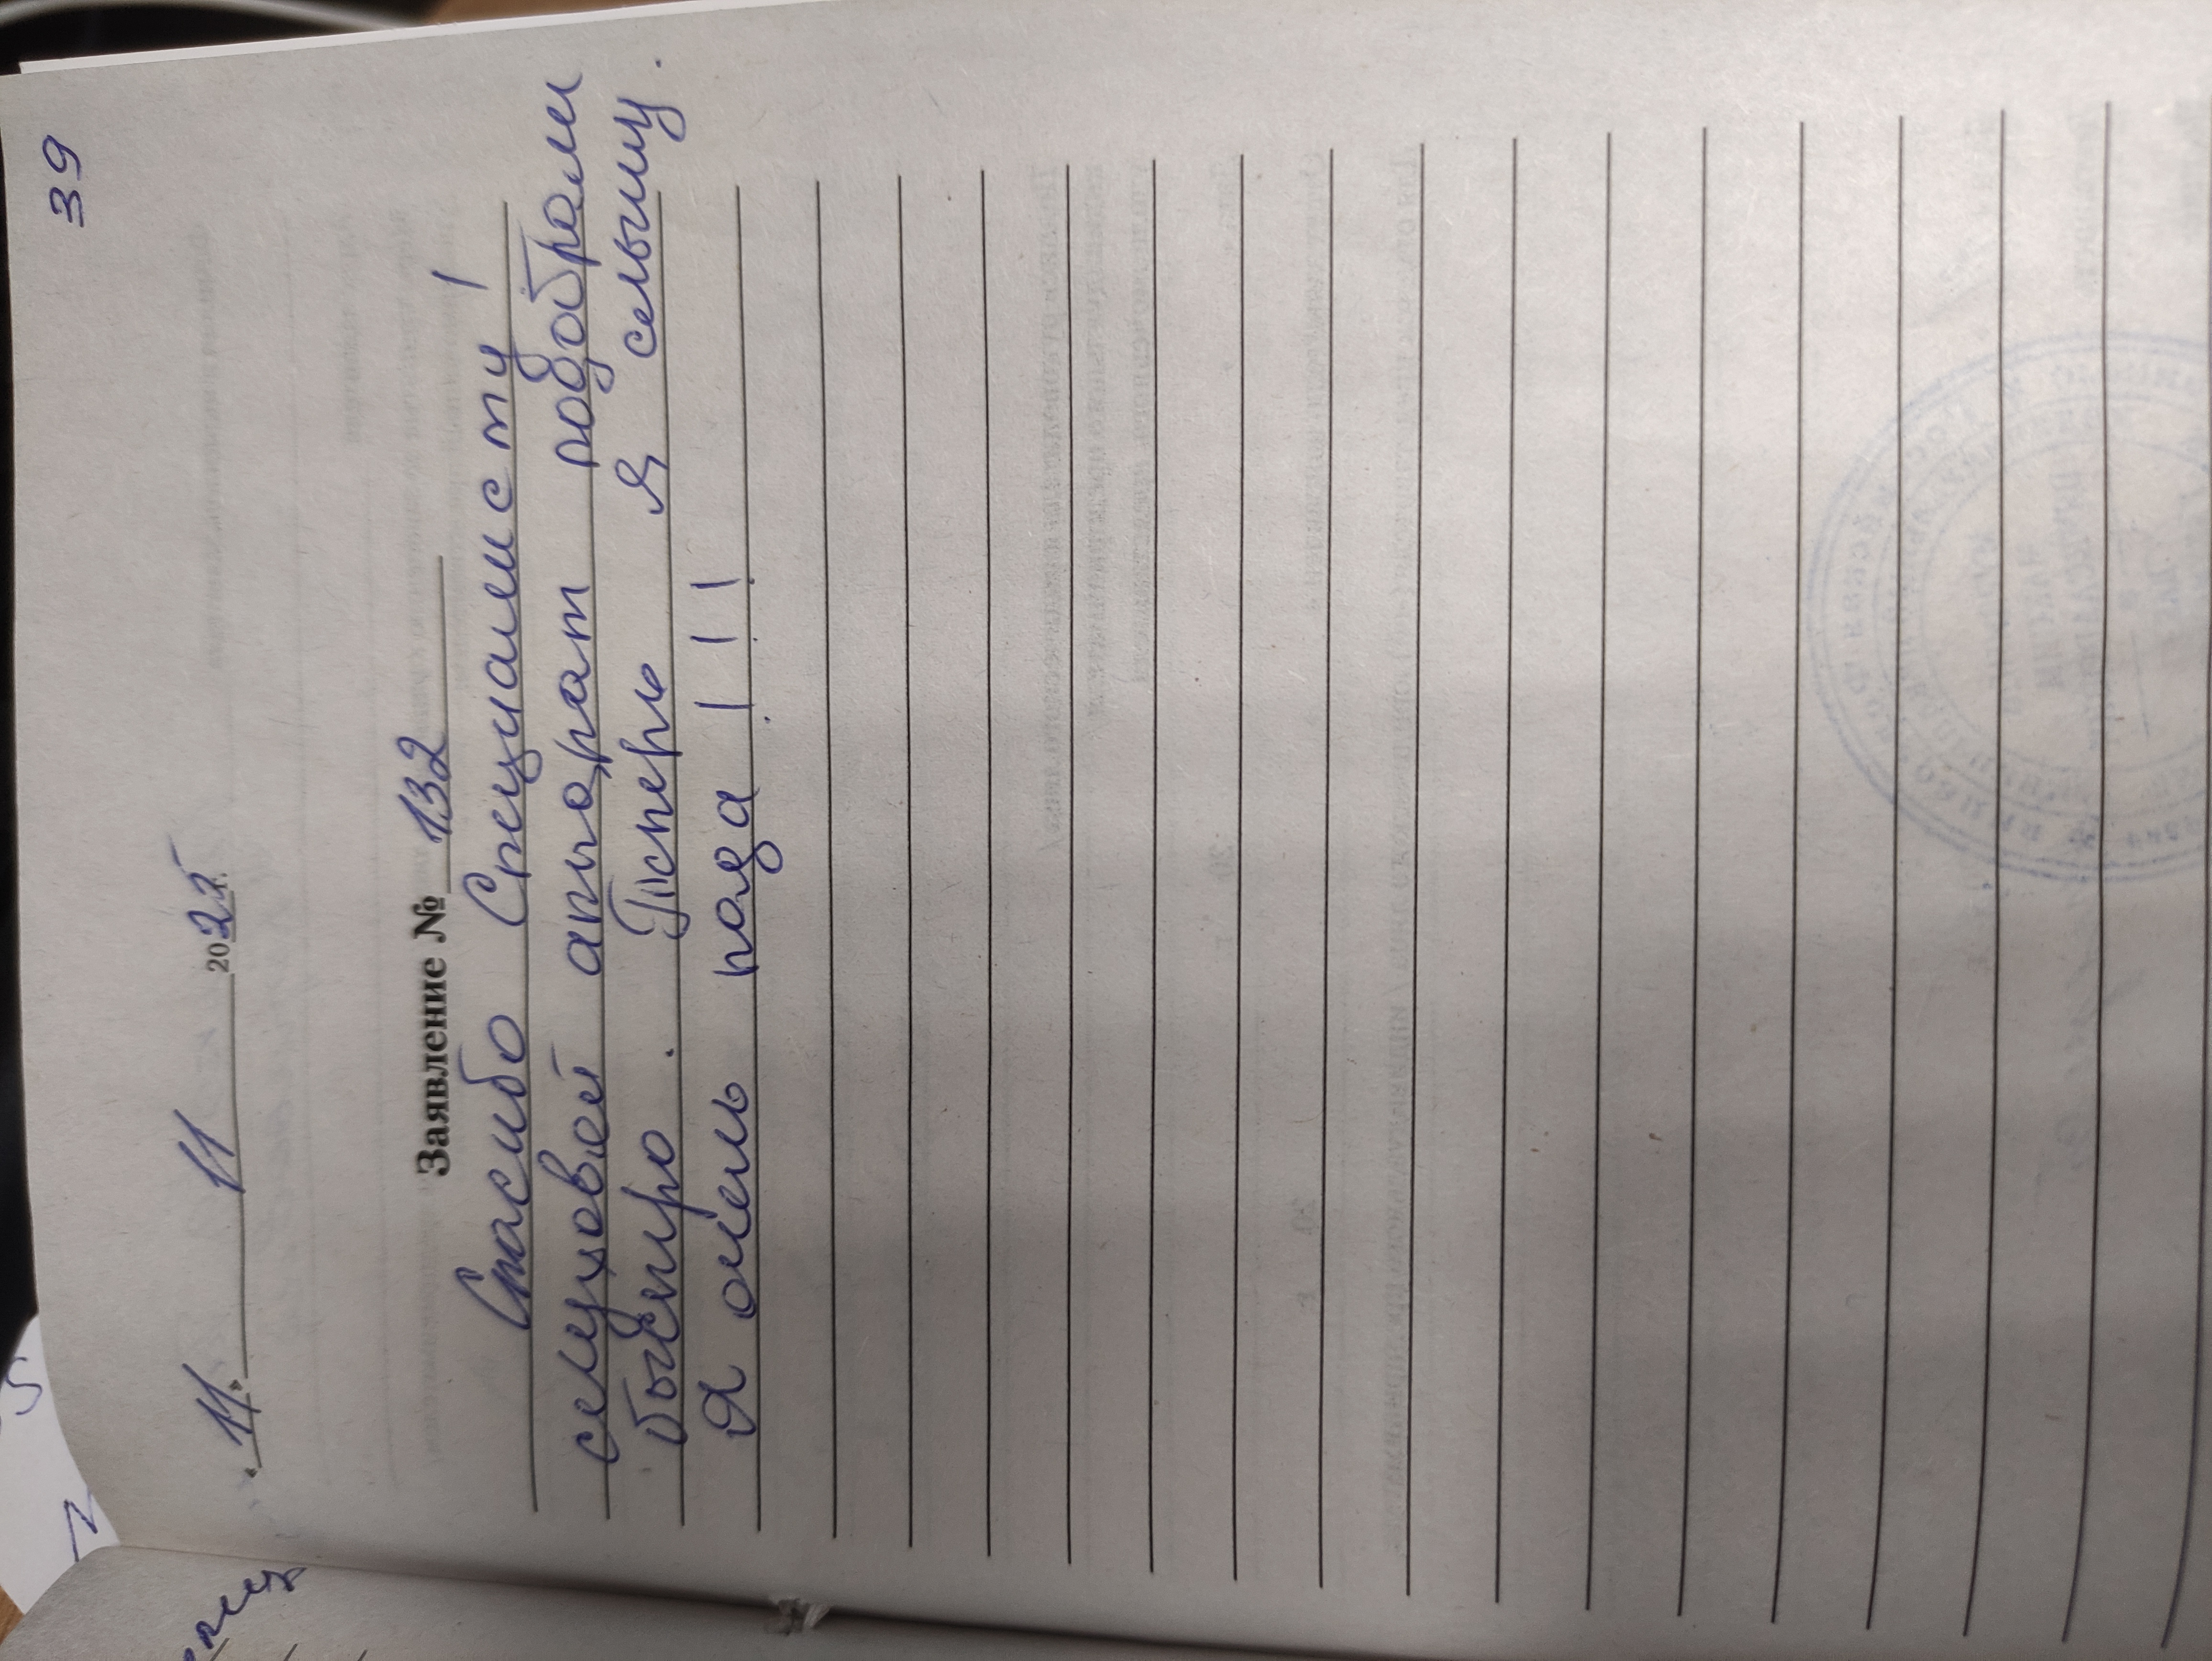 39
«11» 11 2025
Заявление № 132
Спасибо Специалисту!
слуховой аппарат подобрали
быстро. Теперь я слышу.
Я очень рада!!!